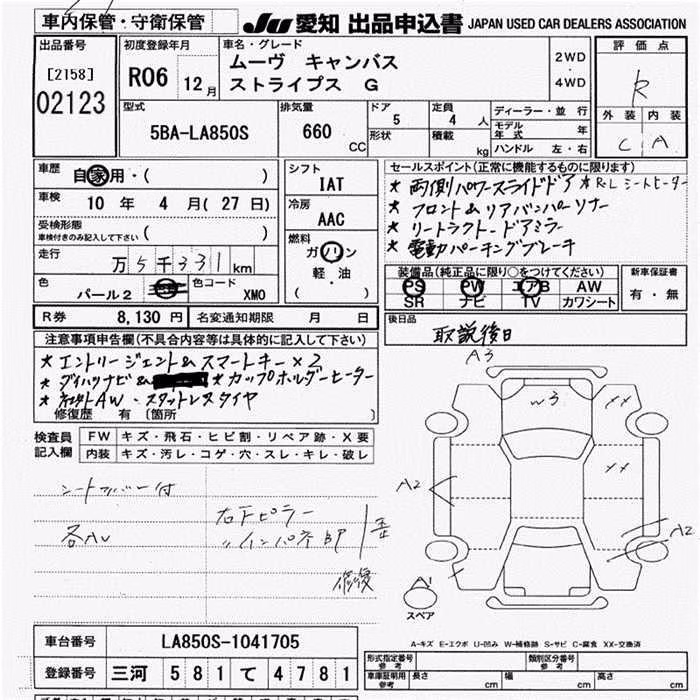 車内保管・守衛保管 JU 愛知 出品申込書 JAPAN USED CAR DEALERS ASSOCIATION
出品番号 初度登録年月 車名・グレード 評価点
[2158] R06 12月 ムーヴ キャンバス 2WD
02123 ストライプス G 4WD R
型式 排気量 ドア 定員 ディーラー・並行 外装 内装
5BA-LA850S 660 CC 5 4 人 モデル年式 年 C A
形状 積載 kg ハンドル 左・右
車歴 自家用・( ) シフト セールスポイント(正常に機能するものに限ります)
IAT ★両側パワースライドドア ★R・Lシートヒーター
車検 10 年 4 月(27 日) 冷房 ★フロント&リアバンパーソナー
受検形態 ( ) AAC ★リートラクトードアミラー
車検付きのみ記入して下さい ★電動パーキングブレーキ
走行 万5千331km 燃料 ガソリン 軽・油 ( ) 装備品(純正品に限り○をつけてください) 新車保証書
色 パール2 色コード XM0 PS PW エアB AW 有・無
SR ナビ TV カワシート
R券 8,130 円 名変通知期限 月 日 後日品
取説後日
注意事項申告欄(不具合内容等は具体的に記入して下さい)
★エントリージェント&スマートキー×2
★ダイハツナビ& ★カップホルダーヒーター
AW・スタットレスタイヤ
修復歴 有 〔箇所 〕
検査員記入欄 FW キズ・飛石・ヒビ割・リペア跡・X要
内装 キズ・汚レ・コゲ・穴・スレ・キレ・破レ
シートカバー付
各AU
右下ピラー
〃インパネ部
修復
A3
W3
XX
XX
A2
A2
A1
スペア
A-キズ E-エクボ U-凹み W-補修跡 S-サビ C-腐食 XX-交換済
車台番号 LA850S-1041705
登録番号 三河 581 て 4781
形式指定番号 参考 類別区分番号 参考
車庫証明用 参考 長さ cm 幅 cm 高さ cm